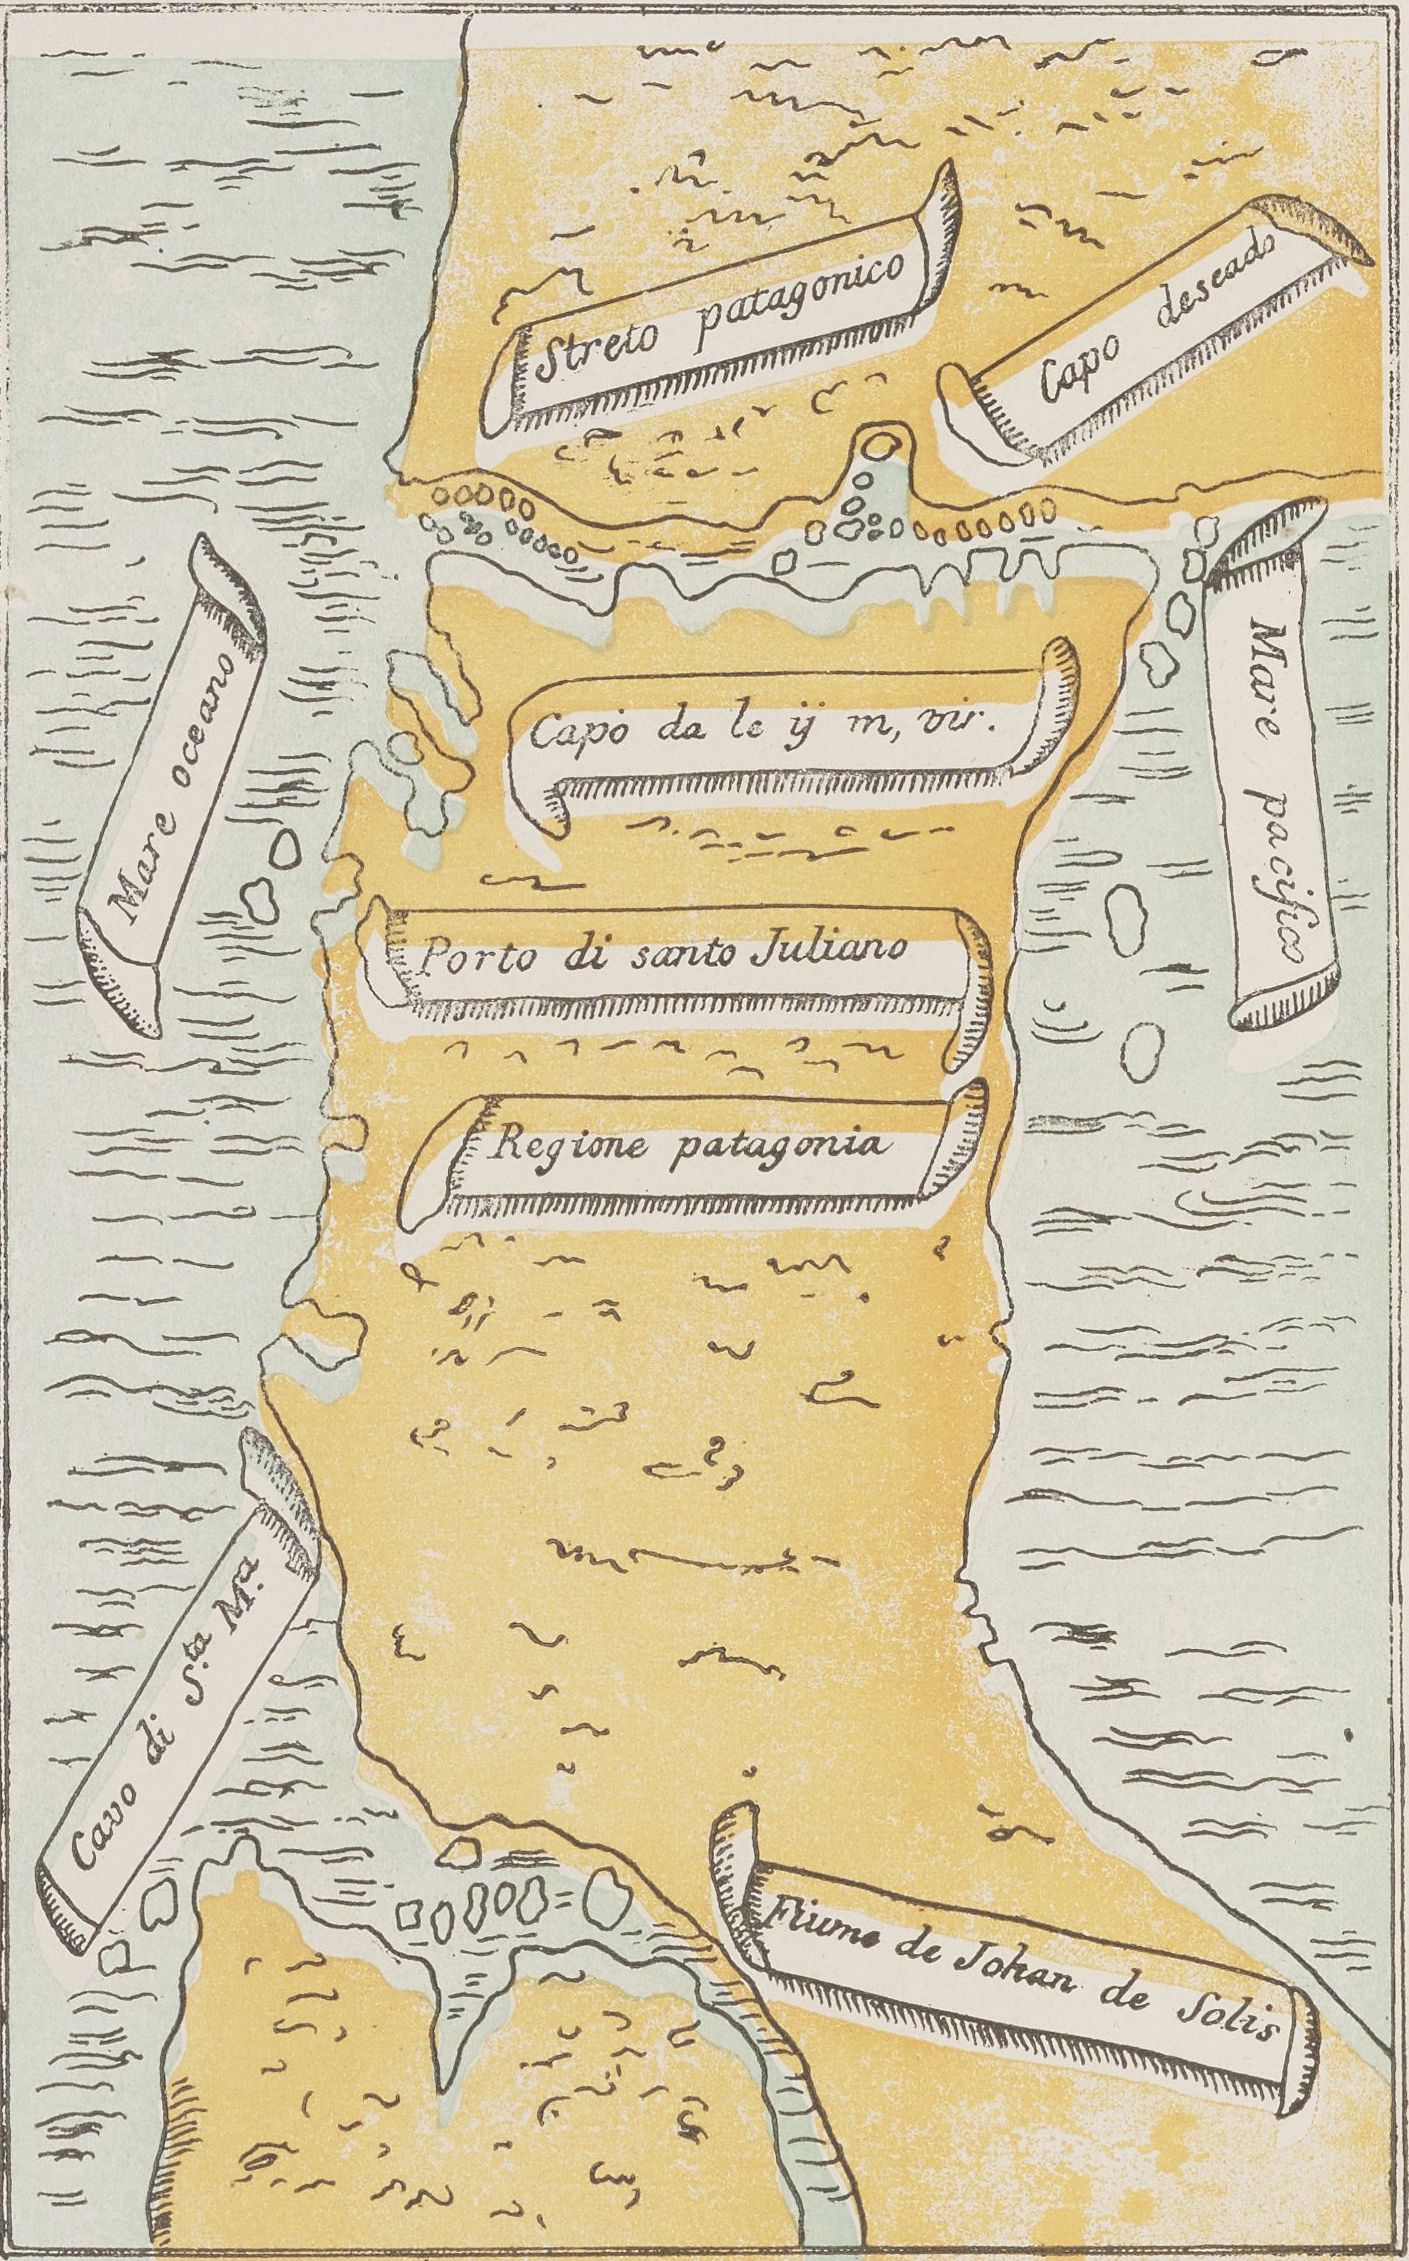 Streto patagonico
Capo deseado
Mare oceano
Capo da le ij m, vir.
Mare pacifico
Porto di santo Juliano
Regione patagonia
Cavo di S.ta M.a
Fiume de Johan de Solis